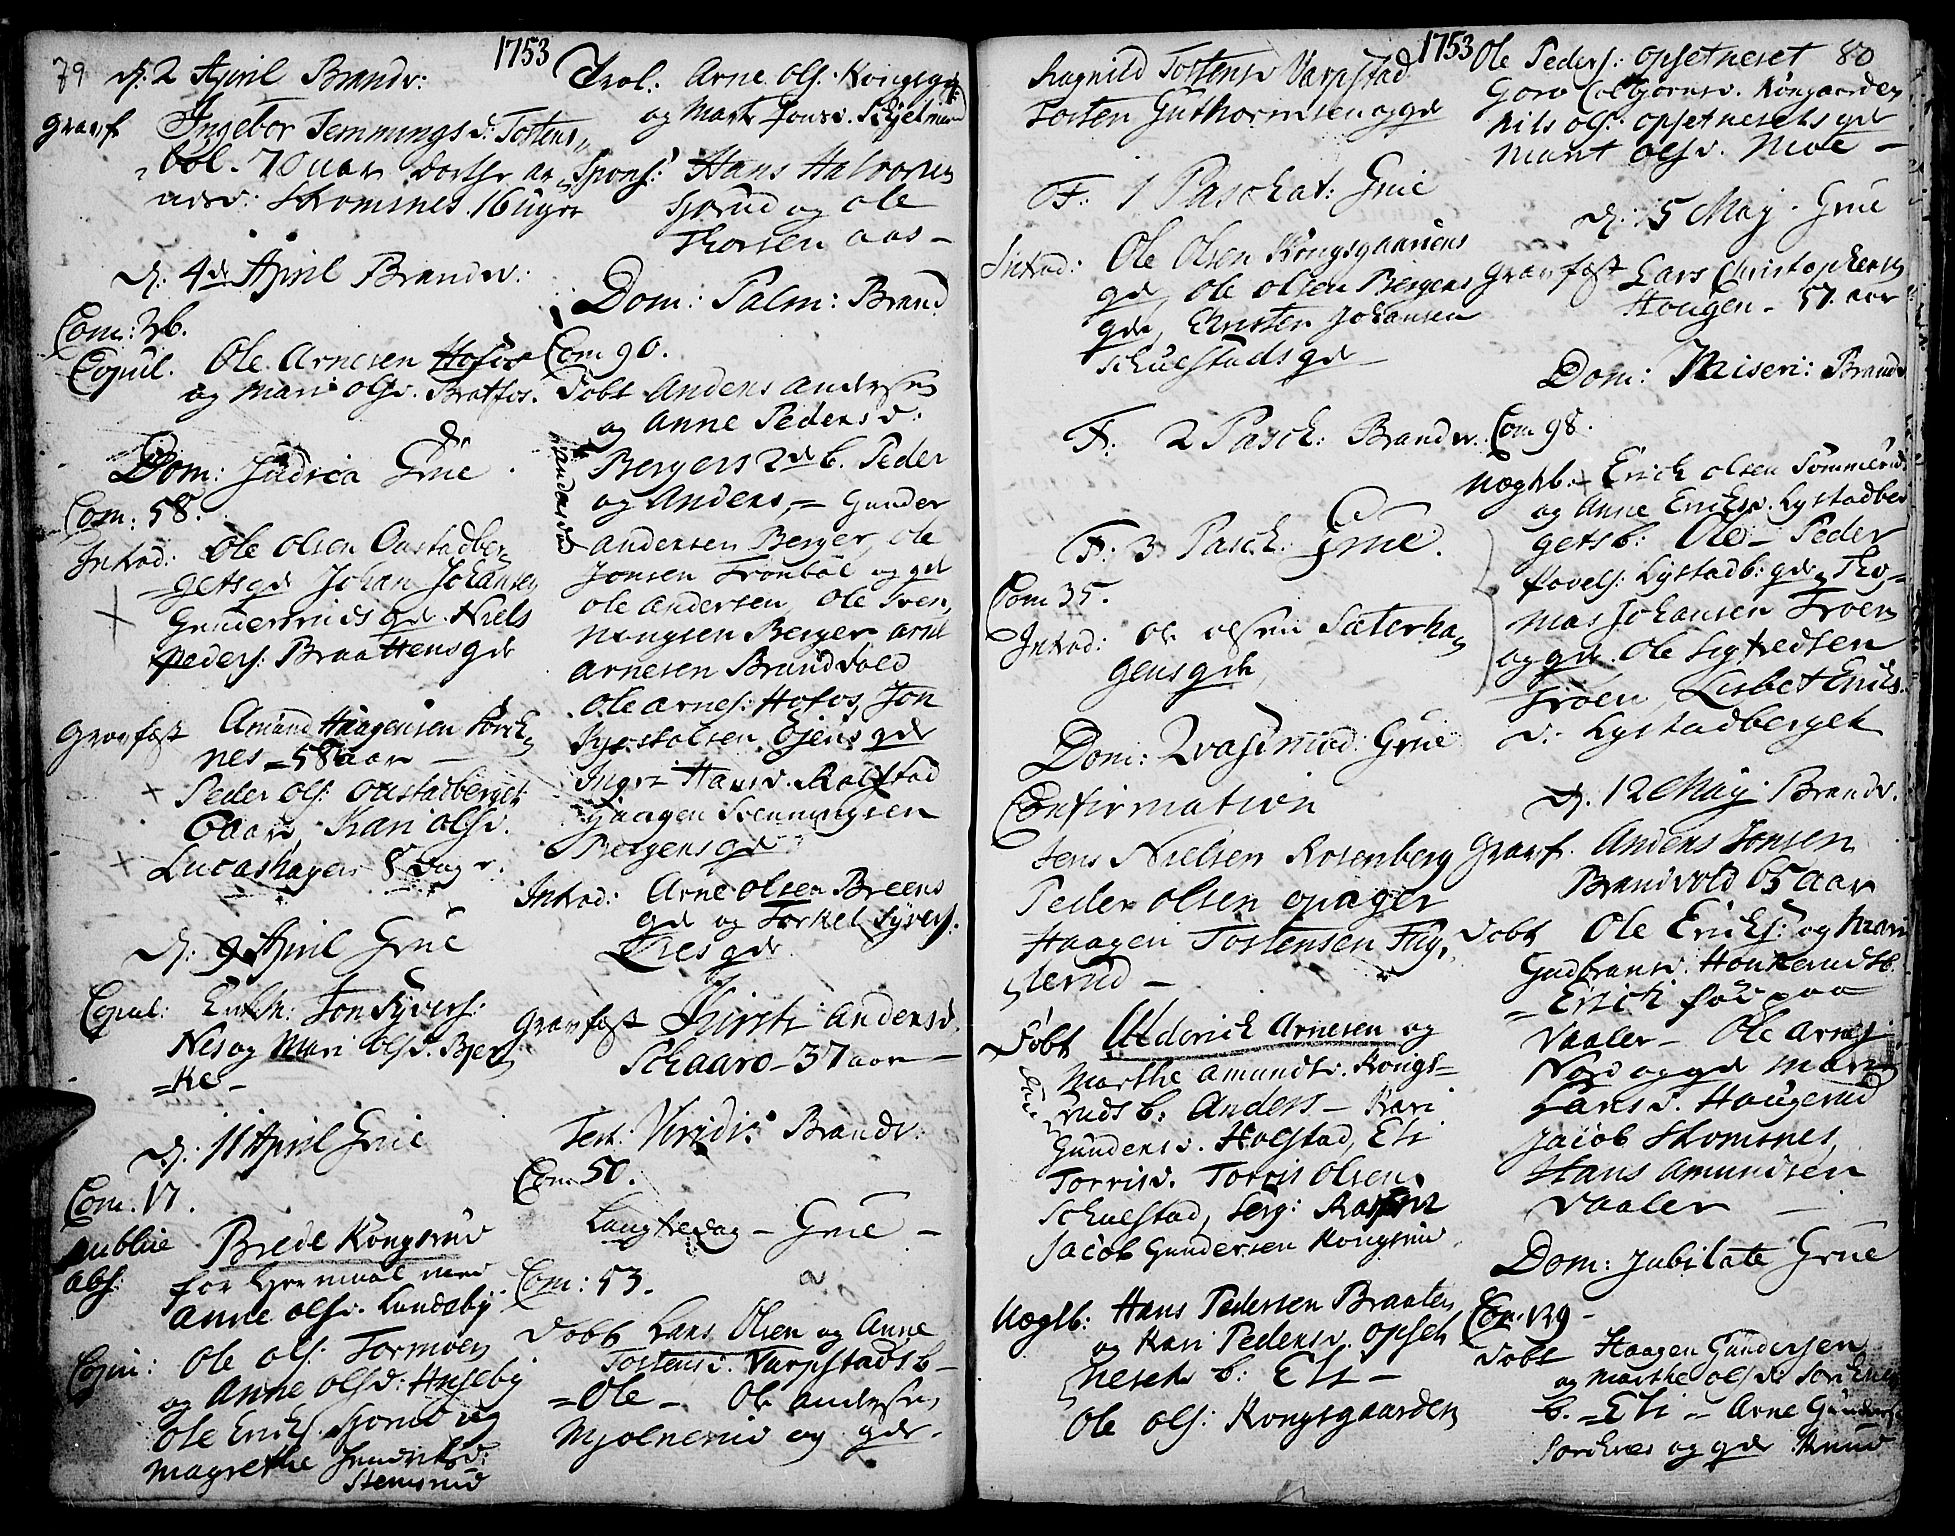 79
1753
d: 2 April Brandv:
Gravf. Ingebor Temmingsd: Tostens
bøl. 70 aar Dorthe Ar
nesd: Stromsnes. 16 uger
d: 4de April Brandv:
Com: 26.
Copul. Ole Arnesen Hofos
og Mari Olsd. Bratfos.
Dom: Judica Grue
Com: 58.
Introd: Ole Olsen Oustadber
getsqde Johan Johansen
Gundersruds qde. Niels
Peders: Braattensqde
Gravfæst Amund Haagensen Kirck
nes 58 aar
Peder Ols: Oustadberget
6 aar, Kari Olsd.
Lucashagen 8 dage
d: 9 April Grue
Copul: Enkm: Jon Syvers:
Nes og Mari Olsd. Bjer
ke
d: 11 April Grue
Com. 17.
publice Brede Kongsrud
abs: for Leermaal med
Anne Olsd. Lundaby
Copu: Ole Ols: Tormoen
og Anne Olsd: Huseby
Ole Ericks. Sjorud og
Magrethe Hendriksd:
Stemsrud
Trol. Arne Ols: Kongsg
og Marte Jonsd.
Spons: Hans Halvorsen
Sjorud og Ole
Thorsen Aas
Dom: Palm: Brand
Com 90.
Døbt Anders Andersen
og Anne Pedersd:
Bergers 2de b. Peder
og Anders, Gunder
Andersen Berger, Ole
Jonsen Tronbøl og qde
Ole Andersen, Ole Sven
nungsen Berger Arne
Arnesen Brandvold
Ole Arnes: Hofos, Jon
Kjostolsen Ojens qde
Ingri Hansd. Rolstad
Haagen Svennungsen
Bergensqde
Introd: Arne Olsen Breens
qde og Torkel Syvers.
qde
Gravfæst Kirsti Andersd.
Schaaro 37 aar
Fest: Viridi: Brandv:
Com 50.
Langfredag Grue
Com: 53.
Døbt Lars Olsen og Anne
Tostensd. Varpstads b
Ole Ole Andersen
Mjolnerud og qde.
1753
Ragnild Tostensd Varpstad
Tosten Guthormsen og qde
F: 1 Paschat: Grue
Introd: Ole Olsen Kongsgaardens
qde, Ole Olsen Bergers
qde, Christen Johansen
Schulstadsqde
F: 2 Pasch: Brandv.
F: 3 Pasch: Grue.
Com 35.
Introd: Ole Olsen Sæterha
gensqde
Dom: Qvasimod: Grue
Confirmation
Jens Nielsen Rosenberg
Peder Olsen Opager
Haagen Tostensen Fug
lerud
Døbt Ulderick Arnesen og
Marthe Amundsd. Kongs
ruds b: Anders Kari
Gundersd. Holstad, Eli
Torrisd. Torris Olsen
Schulstad, Serg:
Jacob Gundersen Kongsrud
Uægtb: Hans Pedersen Braaten
og Kari Pedersd. Opset
nesets b: Eli
Ole Ols: Kongsgaarden
Ole Peders: Opsetneset 80
Goro Colbjornsd. Kongaarden
Nils Ols: Opsetnesets qde
Marit Olsd. Moe
d: 5 May. Grue
Gravfæst Lars Christophersen
Hougen. 57 aar
Dom: Miseri: Brandv
Com 98.
Uægtb: Erick Olsen Sommerud
og Anne Ericksd. Lystadber
getsb: Ole Peder
Povels: Lystadb: qde, Tho
mas Johansen Troen
og qde. Ole Sigfredsen
Troen, Lisbet Ericks
d: Lystadberget
d. 12 May Brandv.
Gravf. Anders Jonsen
Brandvold 65 aar
Døbt Ole Ericks: og Mari
Gudbransd. Houkeruds b.
Erick fød paa
Vaaler Ole Arnes
Nord og qde Mari
Larsd. Hougerud
Jacob Stromsnes,
Hans Amundsen
Vaaler
Dom: Jubilate Grue
Com 129
Døbt Haagen Gundersen
og Marthe Olsd
b. Eli Arne Gunders
og qde Knud